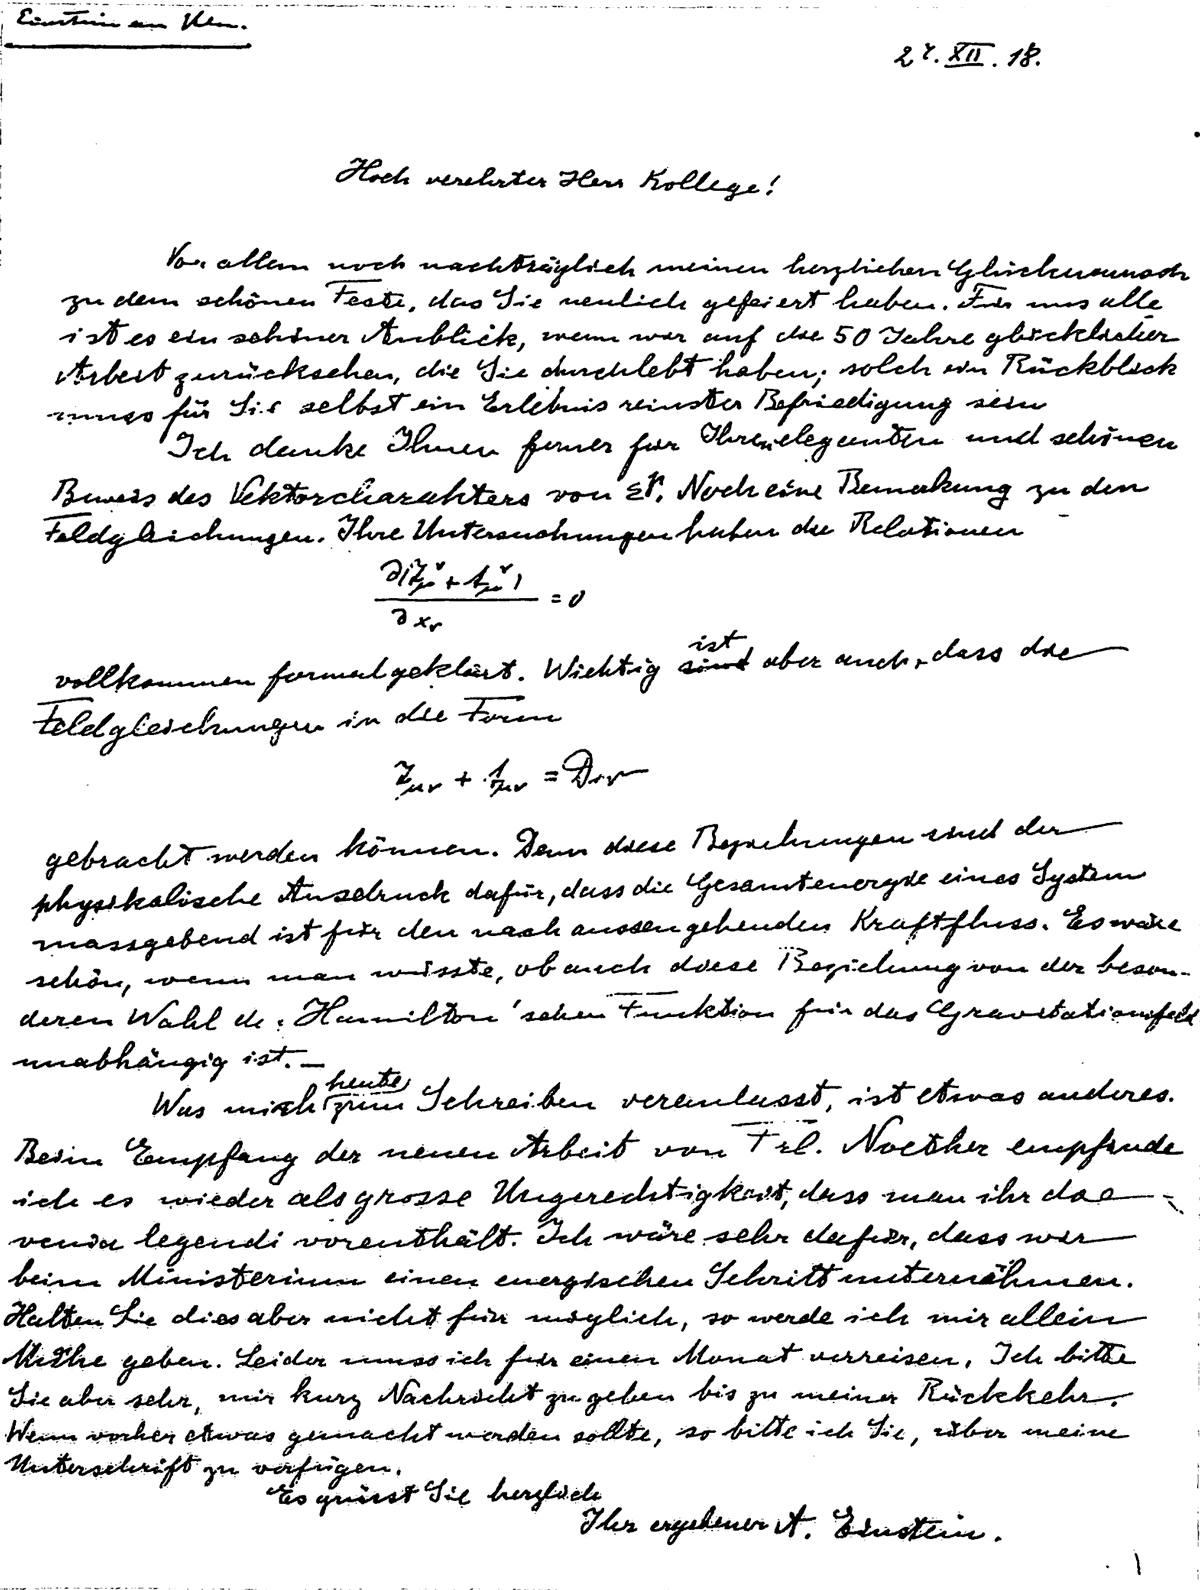 Einstein an Klein.
27. XII. 18.
Hoch verehrter Herr Kollege!
Vor allem noch nachträglich meinen herzlichen Glückwunsch
zu dem schönen Feste, das Sie neulich gefeiert haben. Für uns alle
ist es ein schöner Anblick, wenn wir auf die 50 Jahre glücklicher
Arbeit zurücksehen, die Sie durchlebt haben; solch ein Rückblick
muss für Sie selbst ein Erlebnis reinster Befriedigung sein
Ich danke Ihnen ferner für Ihren eleganten und schönen
Beweis des Vektorcharakters von εᵛ. Noch eine Bemerkung zu den
Feldgleichungen. Ihre Untersuchungen haben die Relationen
∂(𝔗μᵛ + tμᵛ) / ∂xᵥ = 0
vollkommen formal geklärt. Wichtig ist aber auch, dass die
Feldgleichungen in die Form
𝔗μν + tμν = Div
gebracht werden können. Denn diese Beziehungen sind der
physikalische Ausdruck dafür, dass die Gesamtenergie eines System
massgebend ist für den nach aussen gehenden Kraftfluss. Es wäre
schön, wenn man wüsste, ob auch diese Beziehung von der beson-
deren Wahl der Hamilton'schen Funktion für das Gravitationsfeld
unabhängig ist. —
Was mich heute zum Schreiben veranlasst, ist etwas anderes.
Beim Empfang der neuen Arbeit von Frl. Noether empfinde
ich es wieder als grosse Ungerechtigkeit, dass man ihr die
venia legendi vorenthält. Ich wäre sehr dafür, dass wir
beim Ministerium einen energischen Schritt unternähmen.
Halten Sie dies aber nicht für möglich, so werde ich mir allein
Mühe geben. Leider muss ich für einen Monat verreisen. Ich bitte
Sie aber sehr, mir kurz Nachricht zu geben bis zu meiner Rückkehr.
Wenn vorher etwas gemacht werden sollte, so bitte ich Sie, über meine
Unterschrift zu verfügen.
Es grüsst Sie herzlich
Ihr ergebener A. Einstein.